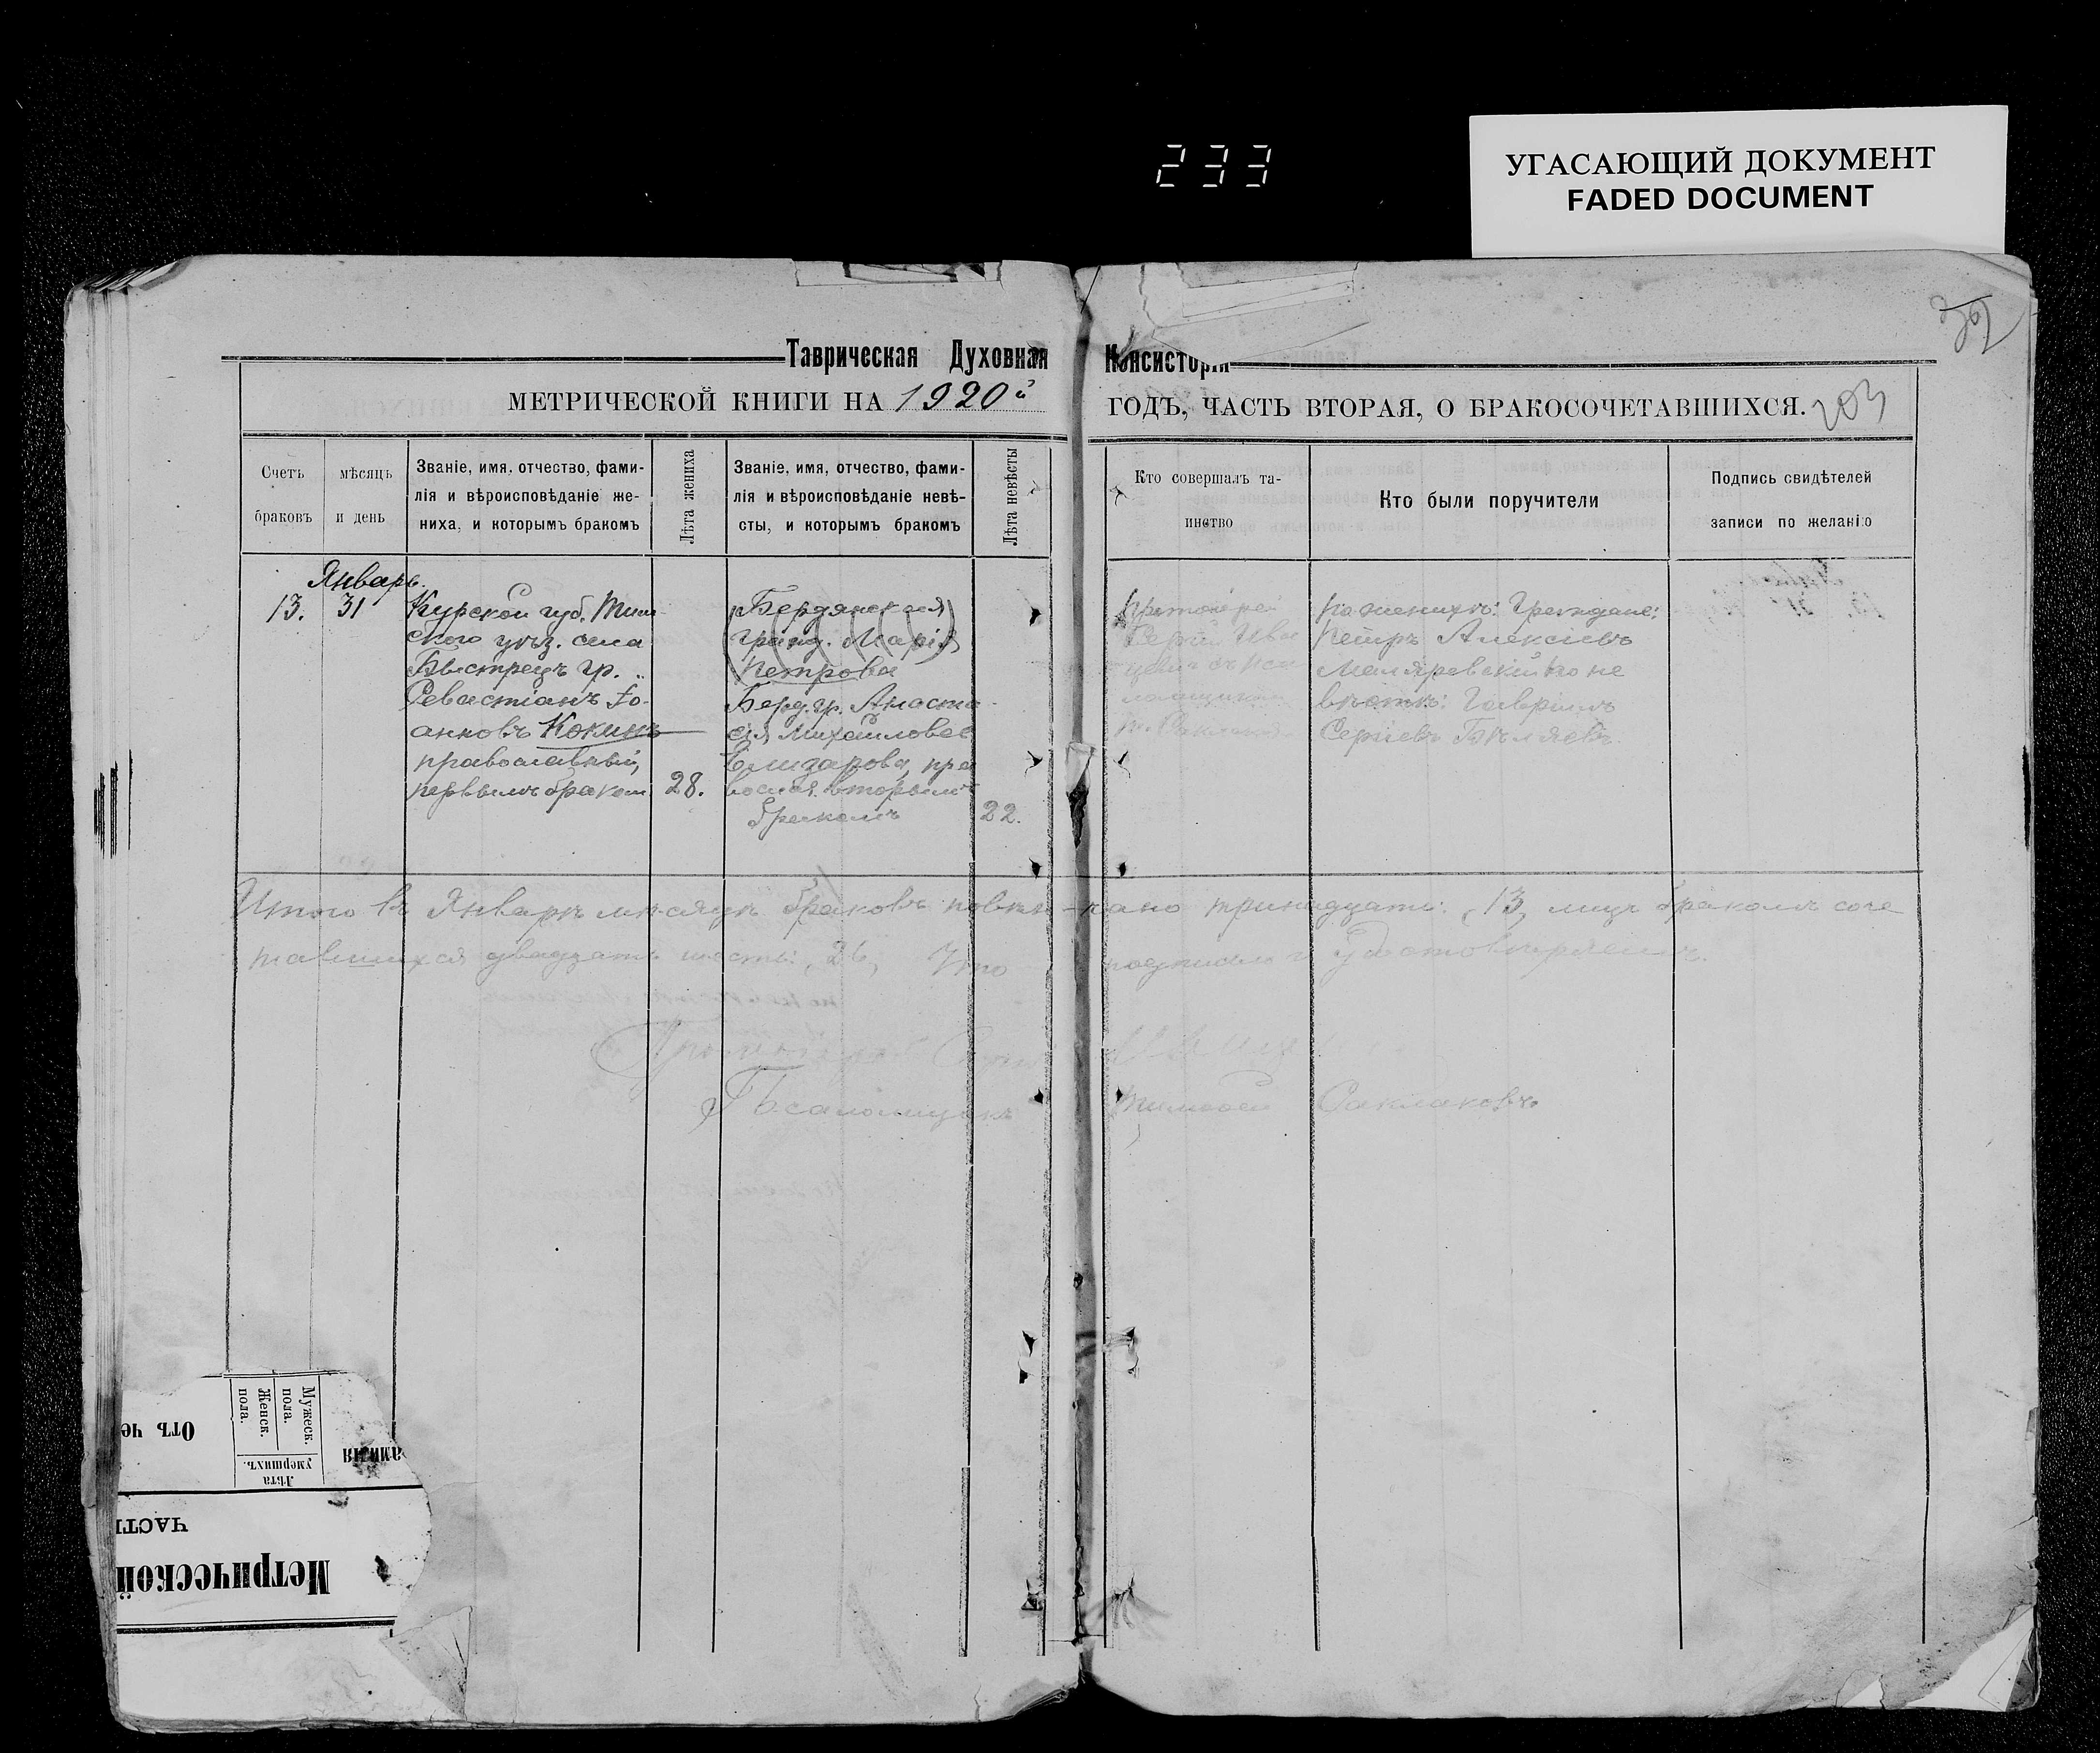 233
УГАСАЮЩИЙ ДОКУМЕНТ
FADED DOCUMENT
Таврическая Духовная Консисторія
МЕТРИЧЕСКОЙ КНИГИ НА 1920й ГОДЪ, ЧАСТЬ ВТОРАЯ, О БРАКОСОЧЕТАВШИХСЯ. 203
Счетъ
браковъ
мѣсяцъ
и день
Званіе, имя, отчество, фами-
лія и вѣроисповѣданіе же-
ниха, и которымъ бракомъ
Лѣта жениха
Званіе, имя, отчество, фами-
лія и вѣроисповѣданіе невѣ-
сты, и которымъ бракомъ
Лѣта невѣсты
Кто совершалъ та-
инство
Кто были поручители
Подпись свидѣтелей
записи по желанію
Январь.
13.
31
Курской губ. Тим
скаго уѣз. села
Быстрецъ гр.
Севастіанъ Іо-
анновъ Кокинъ
православный,
первымъ бракомъ
28.
Бердянская
гражд. Марія
Петрова
Берд. гр. Анаста
сія Михайлова
Елизарова, пра
восл. вторымъ
бракомъ
22.
Протоіерей
Сергій
по женихѣ: Граждане:
Петръ Алексѣевъ
Маляревскій по не
вѣстѣ: Гавріилъ
Сергіевъ Бѣляевъ.
Итого въ Январѣ мѣсяцѣ браковъ повѣнчано тринадцать: 13, лицъ бракомъ соче
тавшихся двадцать шесть: 26, Что подписомъ удостовѣряемъ.
Протоіерей
Псаломщикъ Тимофей Саклаковъ
Отъ че
Мужеск.
пола.
Женск.
пола.
Лѣта
умершихъ.
амилія
ЧАСТЬ
Метрической